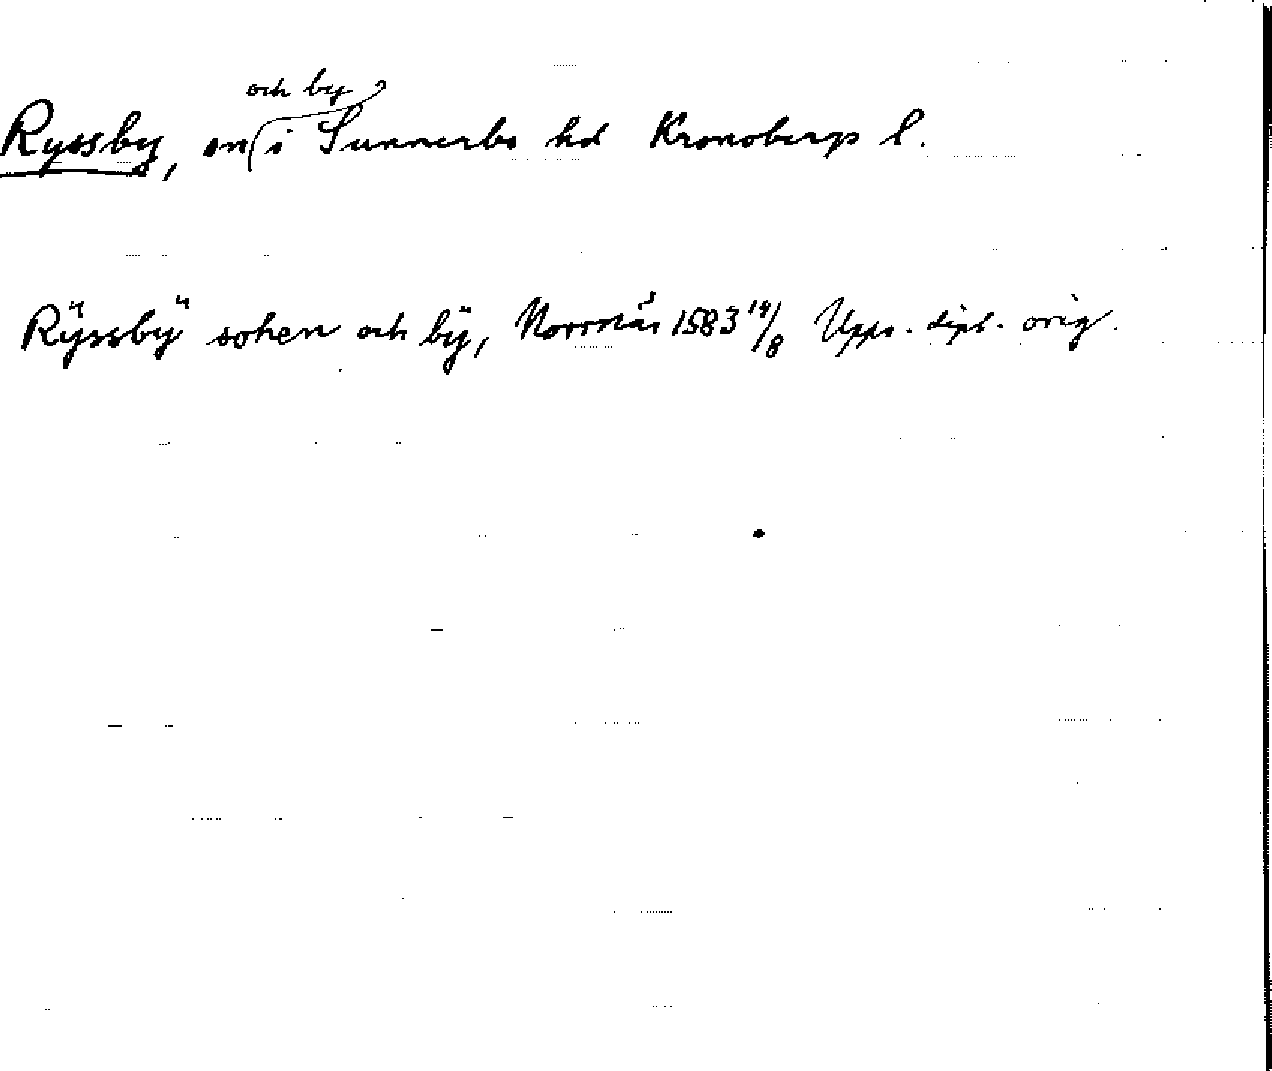 och by
Ryssby, sn i Sunnerbo hd Kronobergs l.
Rÿssbÿ soken och bÿ, Norrnäs 1583 14/8 Upps. dipl. orig.